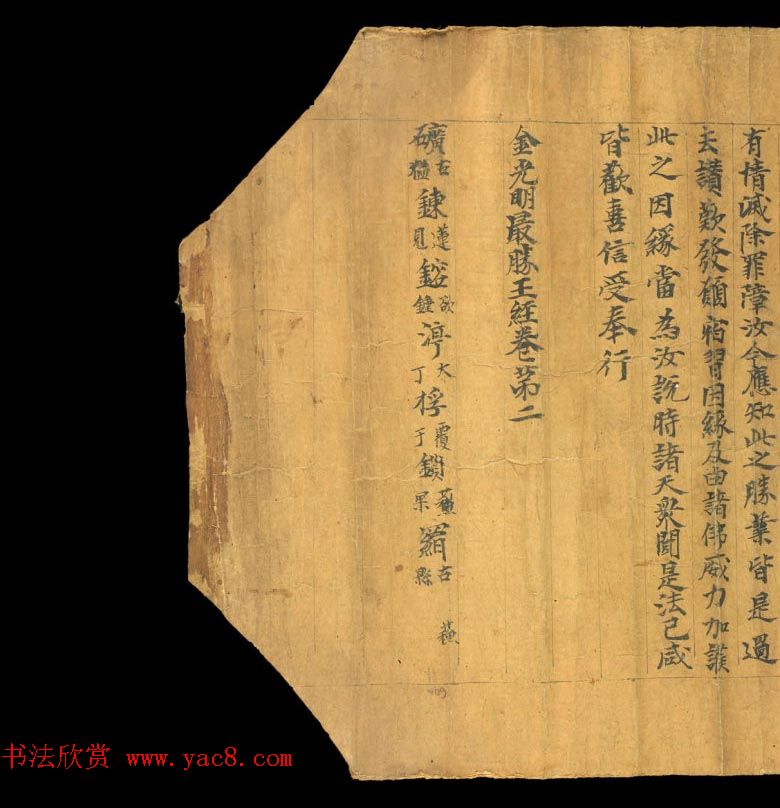 有情滅除罪障汝今應知此之勝業皆是過
去讚歎發願宿習因緣及由諸佛威力加護
此之因緣當為汝說時諸天衆聞是法已咸
皆歡喜信受奉行
金光明最勝王經卷第二
礦古猛鍊蓮見鎔欲鍾渟大丁桴覆于鎖蘇果羂古縣
书法欣赏 www.yac8.com